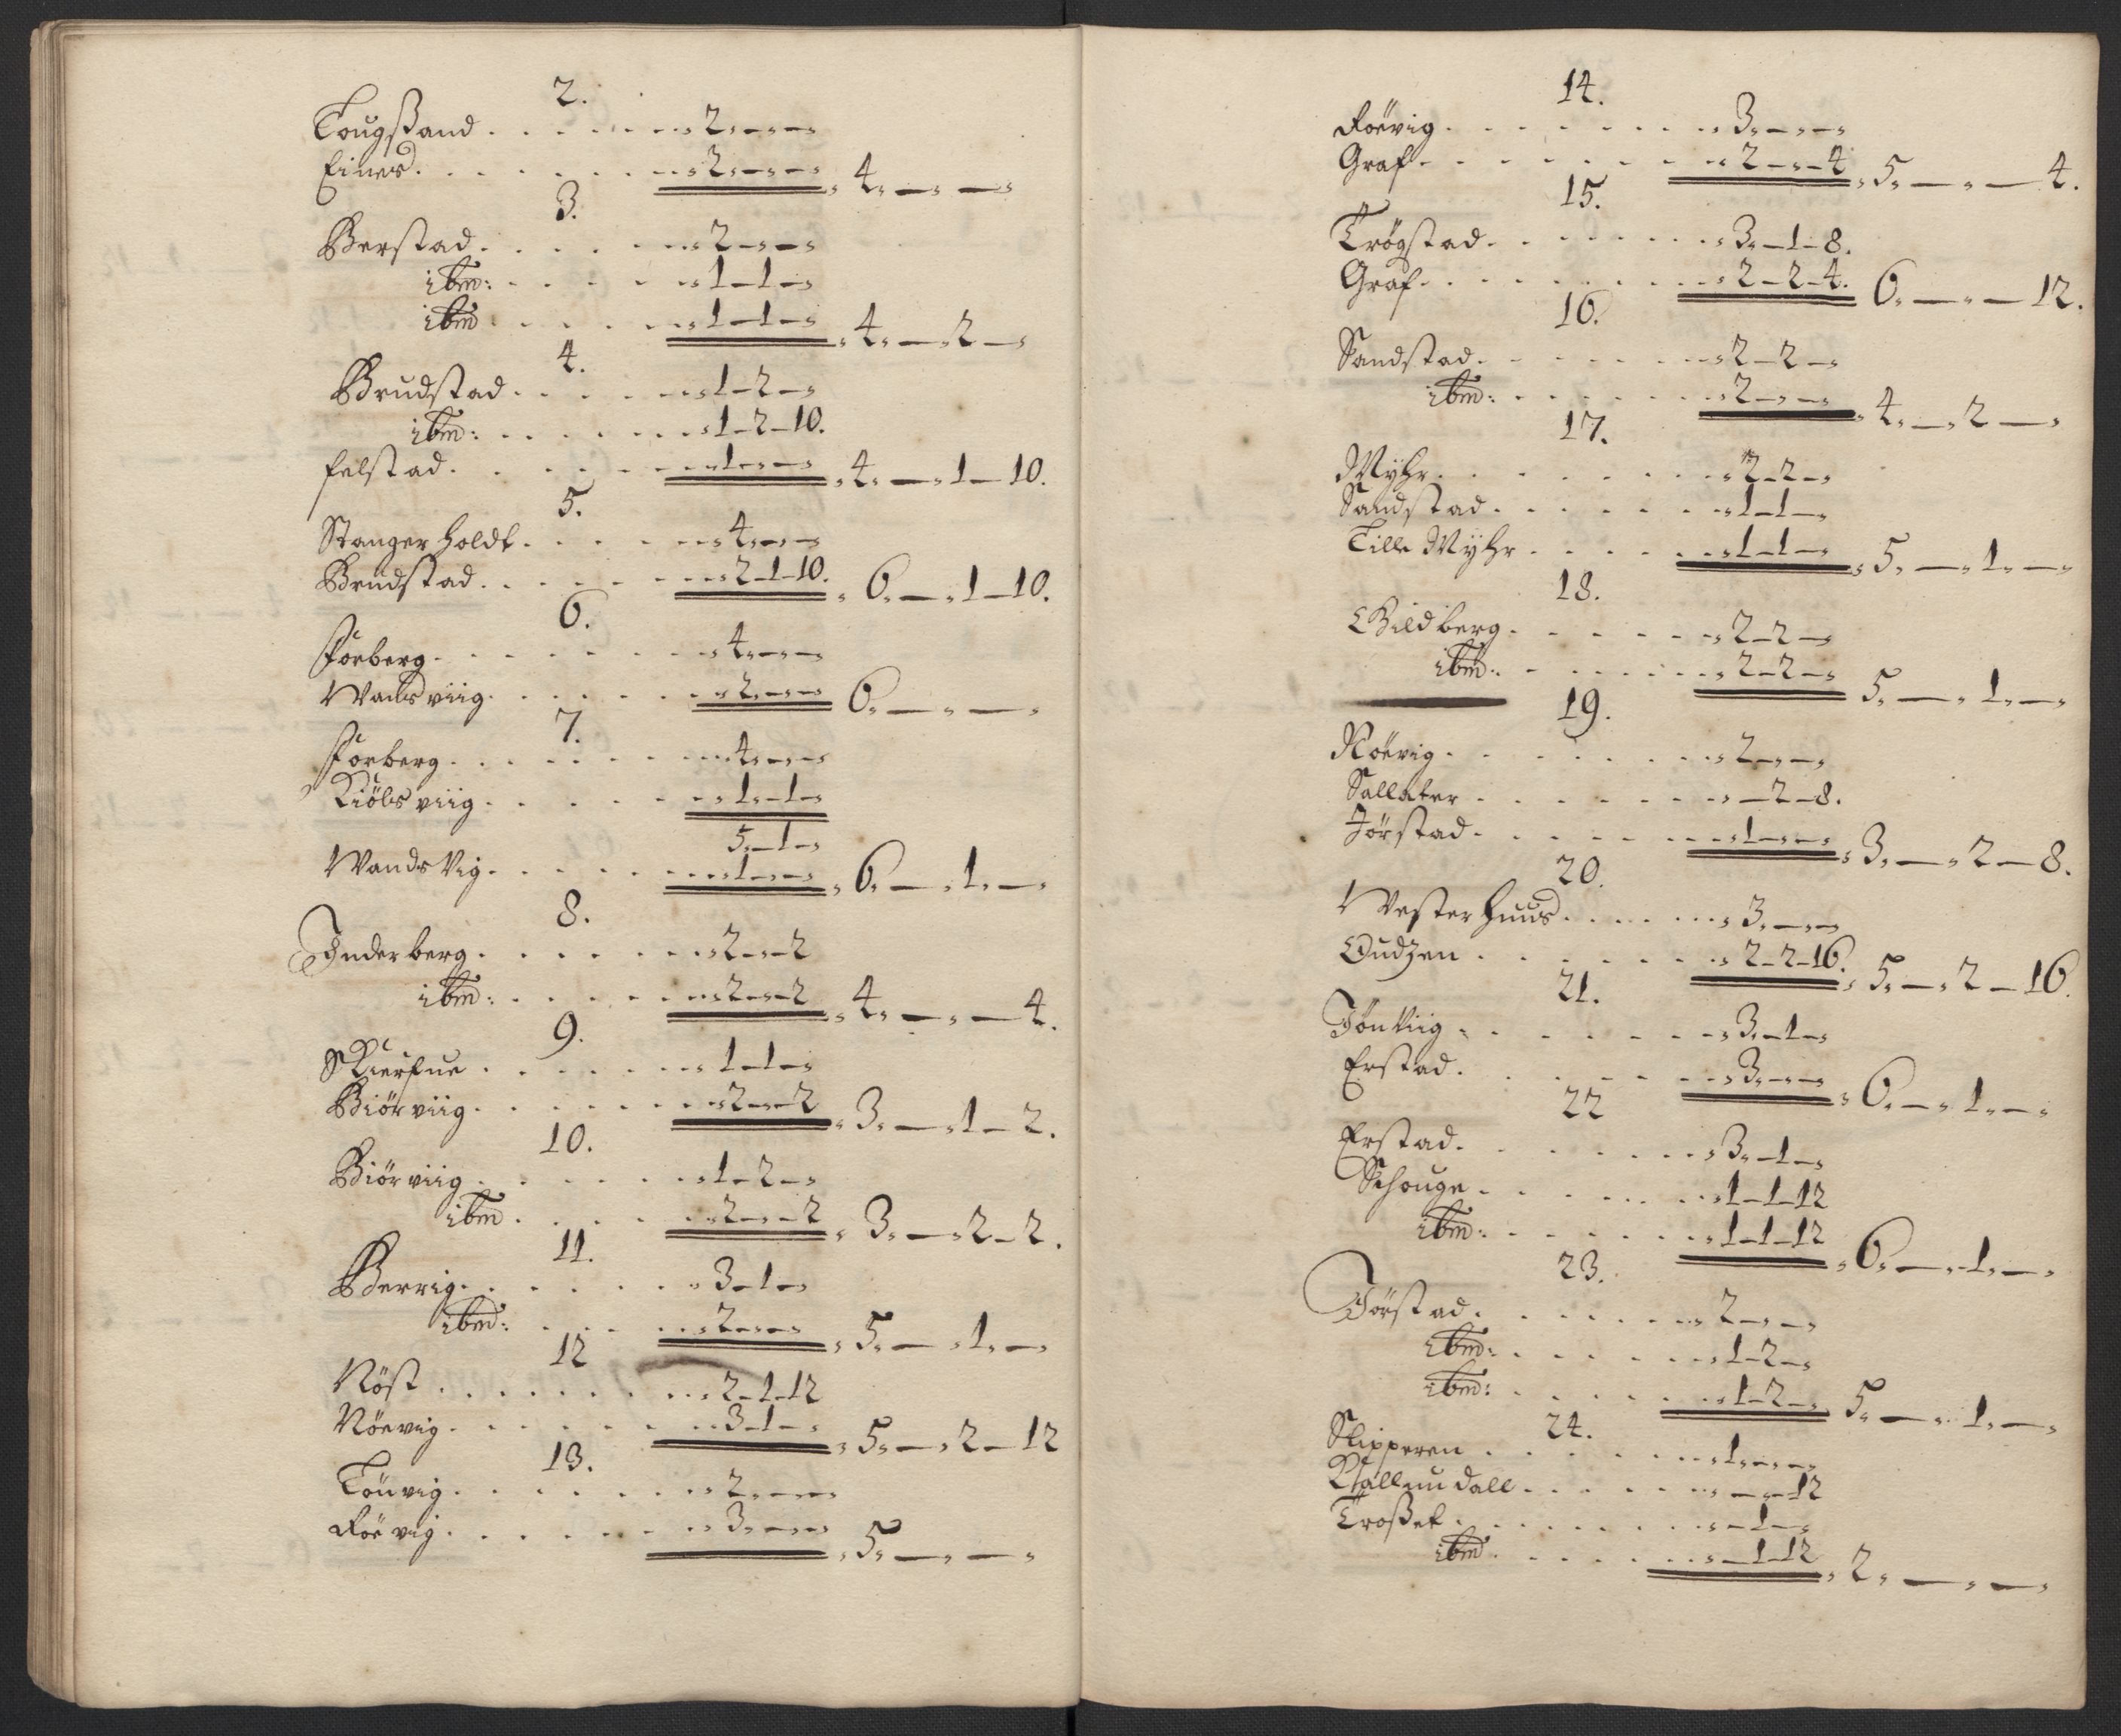 2.
Tougßand . . . . . . . „ 2 „ — „ — „
Eines . . . . . . . „ 2 „ — „ — „ „ 4 „ — „ — „
3.
Berstad . . . . . . „ 2 — „ — „
ibm: . . . . . „ 1 — 1 — „
ibm . . . . . „ 1 — 1 — „ „ 4 „ — „ 2 — „
4.
Brudstad . . . . . „ 1 — 2 — „
ibm: . . . . . . „ 1 — 2 — 10.
Felstad . . . . . . „ 1 „ — „ — „ „ 4 „ — „ 1 — 10.
5.
Stangerholdt . . . . . „ 4 „ — „ — „
Brudstad . . . . . . „ 2 — 1 — 10. „ 6 „ — „ 1 — 10.
6.
Forberg . . . . . . „ 4 „ — „ — „
Wandsviig . . . . . „ 2 „ — „ — „ 6 „ — „ — „
7.
Forberg . . . . . . „ 4 „ — „ — „
Kiölsviig . . . . . „ 1 „ — 1 — „
5 „ — 1 — „
WandsVig . . . . . . „ 1 — „ — „ „ 6 „ — „ 1 „ — „
8.
Inderberg . . . . . . „ 2 — „ — 2
ibm: . . . . . „ 2 — „ — 2 „ 4 „ — „ — 4.
9.
Skierfue . . . . . . „ 1 — 1 — „
Biörviig . . . . . . „ 2 — „ — 2 „ 3 „ — „ 1 — 2.
10.
Biörviig . . . . . . „ 1 — 2 — „
ibm . . . . . „ 2 — „ — 2 „ 3 „ — „ 2 — 2.
11.
Berrig . . . . . . „ 3 — 1 — „
ibm: . . . . . „ 2 „ — „ — „ „ 5 „ — „ 1 „ — „
12
Nöst . . . . . . . „ 2 — 1 — 12
Nöevig . . . . . . . 3 — 1 — „ „ 5 „ — „ 2 — 12
13.
Töuvig . . . . . . „ 2 „ — „ — „
Roevig . . . . . . „ 3 „ — „ — „ „ 5 „ — „ — „
14.
Roevig . . . . . . . „ 3 „ — „ — „
Graf . . . . . . . „ 2 — „ — 4 „ 5 „ — „ — 4.
15.
Trögstad . . . . . . „ 3 „ — 1 — 8.
Graf . . . . . . . „ 2 — 2 — 4. 6 „ — „ — 12.
16.
Sandstad . . . . . . „ 2 — 2 — „
ibm: . . . . . . „ 2 — „ — „ „ 4 „ — „ 2 — „
17.
Myhr . . . . . . . „ 2 — 2 — „
Sandstad . . . . . . „ 1 — 1 — „
Lille Myhr . . . . . „ 1 — 1 — „ „ 5 „ — „ 1 „ — „
18.
Bildberg . . . . . . „ 2 — 2 — „
ibm: . . . . . . „ 2 — 2 — „ 5 „ — „ 1 „ — „
19.
Noevig . . . . . . . „ 2 — „ — „
Sallater . . . . . . „ — 2 — 8.
Jörstad . . . . . . „ 1 — „ — „ „ 3 „ — „ 2 — 8.
20.
Vesterhuus . . . . . „ 3 „ — „ — „
Oudzen . . . . . . „ 2 — 2 — 16. „ 5 „ — „ 2 — 16.
21.
JönViig . . . . . . „ 3 „ — 1 — „
Erstad . . . . . . „ 3 „ — „ — „ „ 6 „ — „ 1 „ — „
22
Erstad . . . . . . . „ 3 „ — 1 — „
Schouge . . . . . . „ 1 — 1 — 12
ibm: . . . . . . „ 1 — 1 — 12 „ 6 „ — „ 1 „ — „
23.
Jörstad . . . . . . „ 2 — „ — „
ibm: . . . . . . „ 1 — 2 — „
ibm: . . . . . . „ 1 — 2 — „ 5 „ — „ 1 „ — „
24.
Slipperen . . . . . „ 1 „ — „ — „
dall . . . . . „ — „ — 12
Troßet . . . . . . „ — 1 — „
ibm . . . . . . „ — 1 — 12 „ 2 „ — „ — „